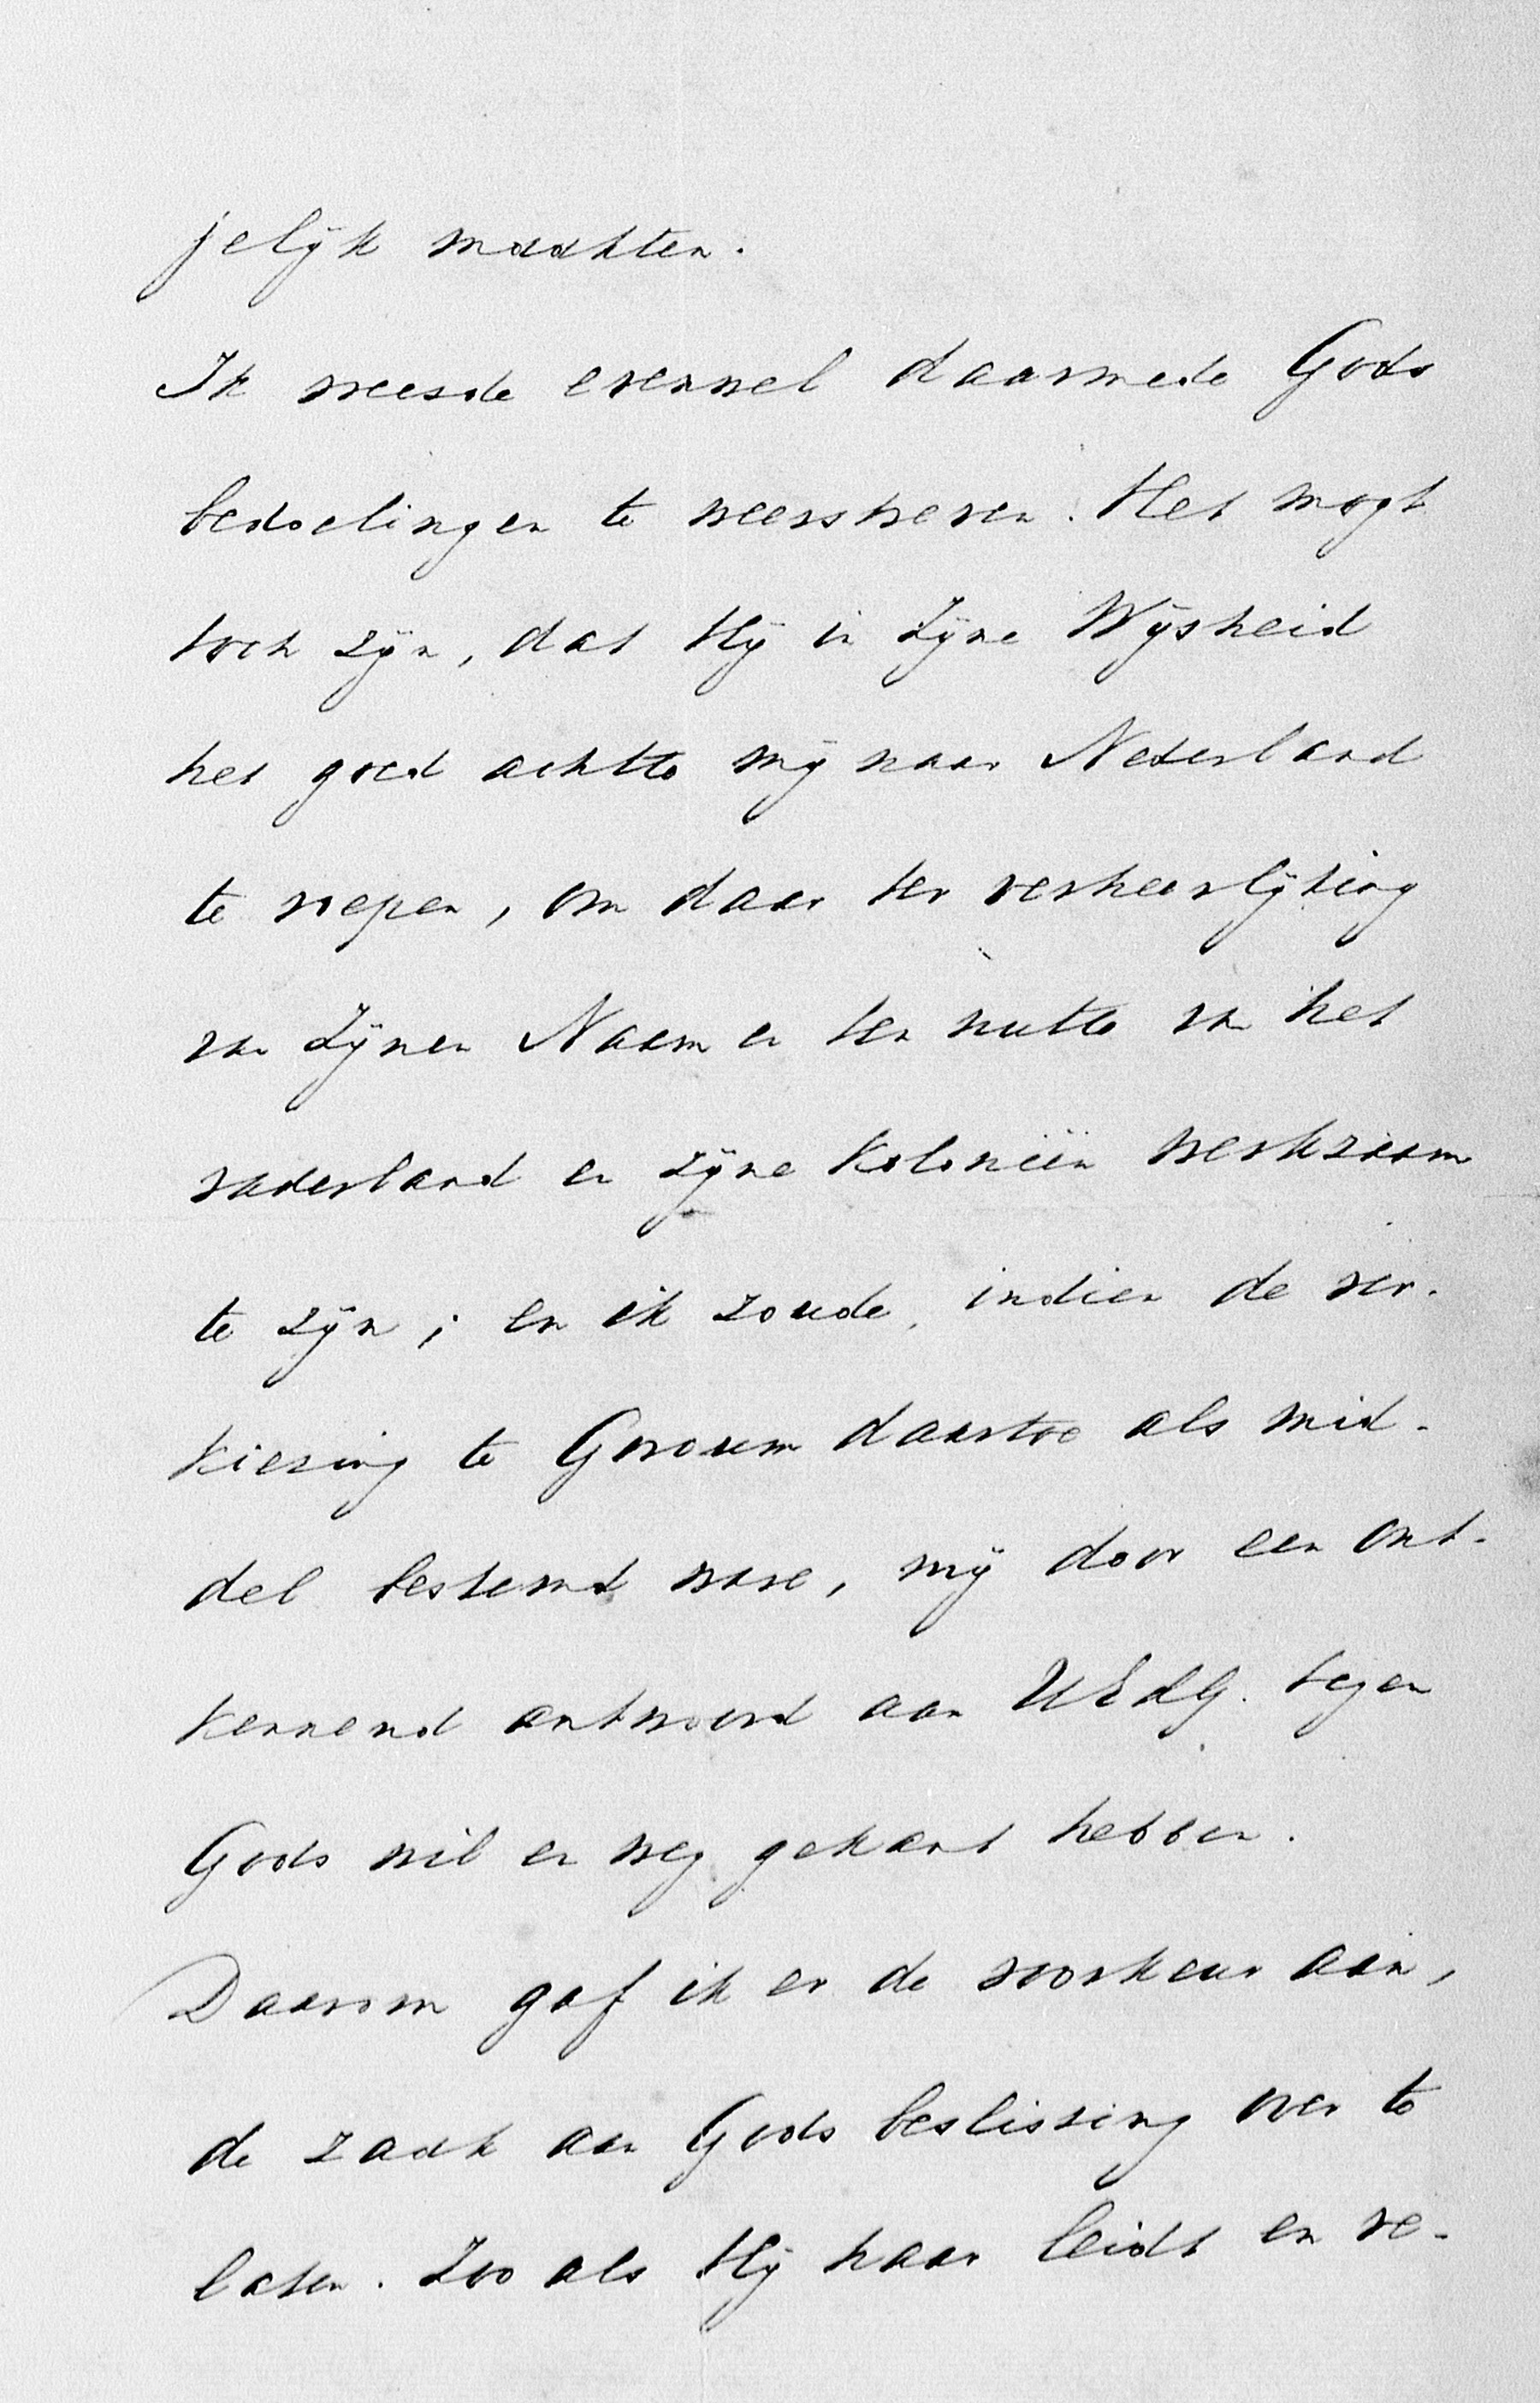 jelijk maakten.
Ik vreesde evenwel daarmede Gods
bedoelingen te weerstreven. Het mogt
toch zijn, dat Hij in Zijne Wijsheid
het goed achtte mij naar Nederland
te roepen, om daar ter verheerlijking
van Zijnen Naam en ten nutte van het
vaderland en zijne Koloniën werkzaam
te zijn; en ik zoude, indien de ver-
kiezing te Gorcum daartoe als mid-
del bestemd ware, mij door een ont-
kennend antwoord aan UEdG. tegen
Gods wil en weg gekant hebben.
Daarom gaf ik er de voorkeur aan,
de zaak aan Gods beslissing over te
laten. Zoo als Hij haar leidt en re-